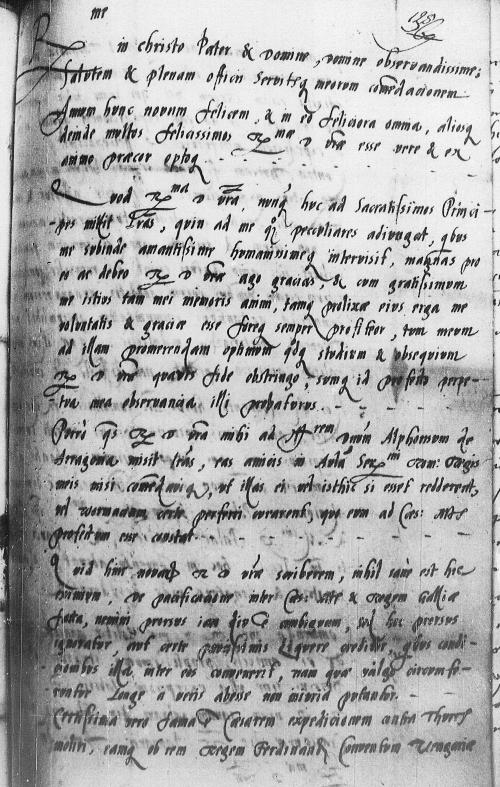 me
125
R
in christo Pater & Domine, domine observandissime:
Salutem & plenam officii Servitsq meorum comedacionem
Annum hunc novum felicem, & in eo feliciora omnia, aliosq
deinde multos felicissimos R ma d vrae esse vere & ex
animo praecor optoq
Quod R ma d vra, nunq huc ad Sacratissimos Princi-
pes mittit lras, quin ad me qq peculiares adiungat, qbus
me subinde amantissime humanissimeq intervisit, magnas pro
eo ac debeo R d vrae ago gracias, & cum gratissimum
me istius tam mei memoris animi, tamq prolixae eius erga me
voluntatis & graciae esse foreq semper profiteor, tum meum
ad illam promerendam optimum qdq studium & obsequium
R d vrae quavis fide obstringo, sumq id profecto perpe-
tua mea observancia illi probaturus.
Porro qs R d vra mihi ad Rrem dnum Alphonsum de
Arragonia misit lras, eas amicis in Aula Ser mi Rom: Regis
meis misi comedavi, ut illas ei vel isthic si esset redderent,
vel wormaciam certe perferri curarent, quo eum ad Caes: Mtem
profectum esse constat
Quid hinc novi R d vrae scriberem, nihil sane est hic
enimvero, de pacificacione inter Caes: Mte & Regem Galliae
facta, nemini prorsus iam diu e ambiguum, sed hoc prorsus
ignoratur, aut certe paucissimis liquere creditur, qbus condi-
cionibus illa inter eos convenerit, nam quae vulgo circumfe-
runtur longe a veris abesse non iniuria putantur.
Certissima vero fama e Caesarem expedicionem contra Thurc
moliri, eamq ob rem Regem Ferdinandu Conventum Vengariae